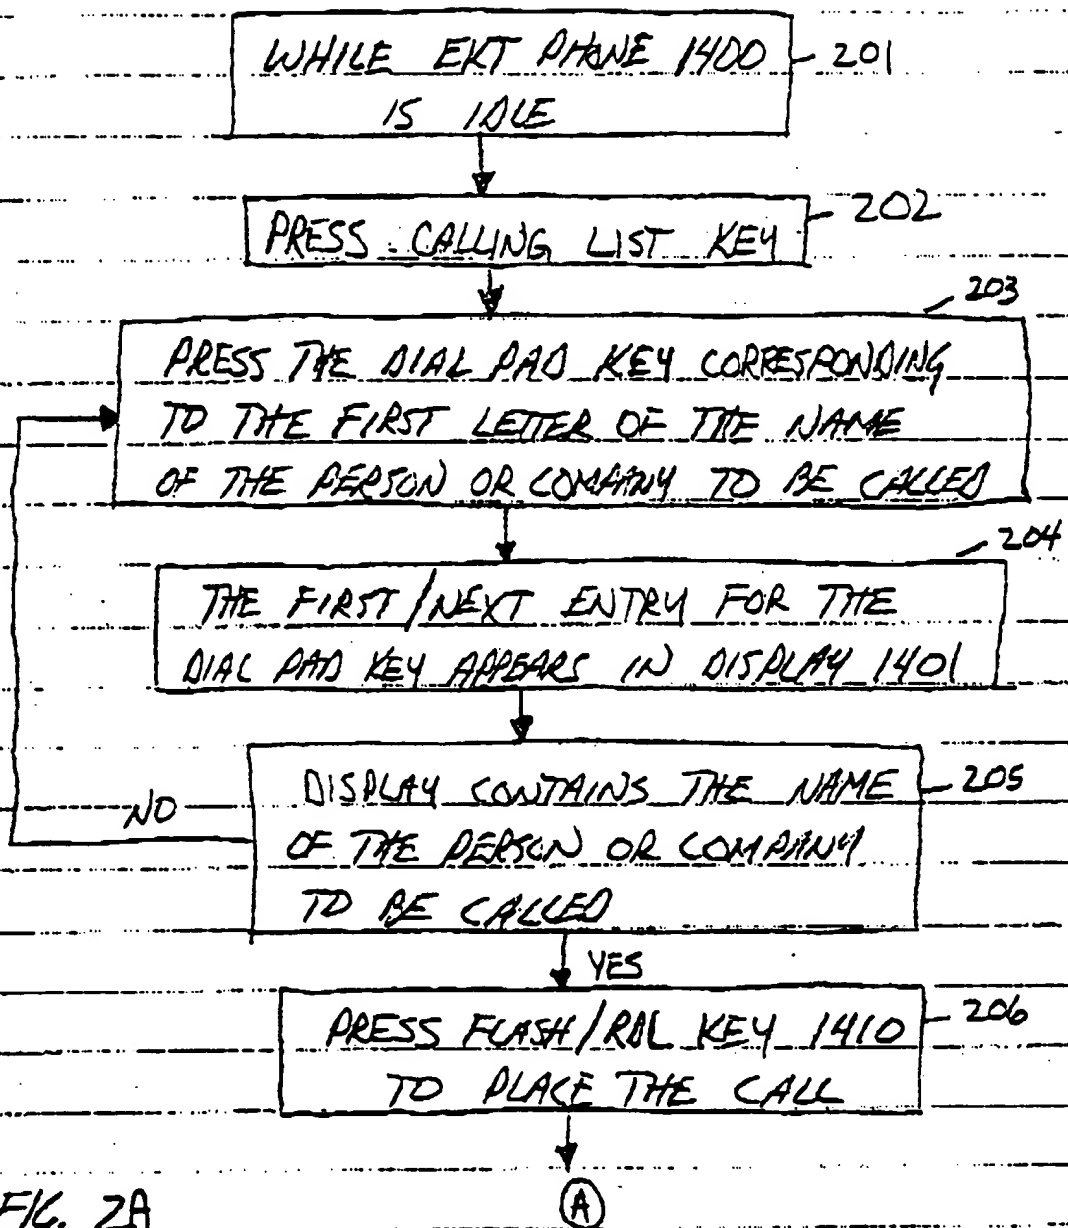 WHILE EKT PHONE 1400
IS IDLE
201
PRESS CALLING LIST KEY
202
203
PRESS THE DIAL PAD KEY CORRESPONDING
TO THE FIRST LETTER OF THE NAME
OF THE PERSON OR COMPANY TO BE CALLED
204
THE FIRST/NEXT ENTRY FOR THE
DIAL PAD KEY APPEARS IN DISPLAY 1401
DISPLAY CONTAINS THE NAME
OF THE PERSON OR COMPANY
TO BE CALLED
205
NO
YES
PRESS FLASH/RDL KEY 1410
TO PLACE THE CALL
206
A
FIG. 2A